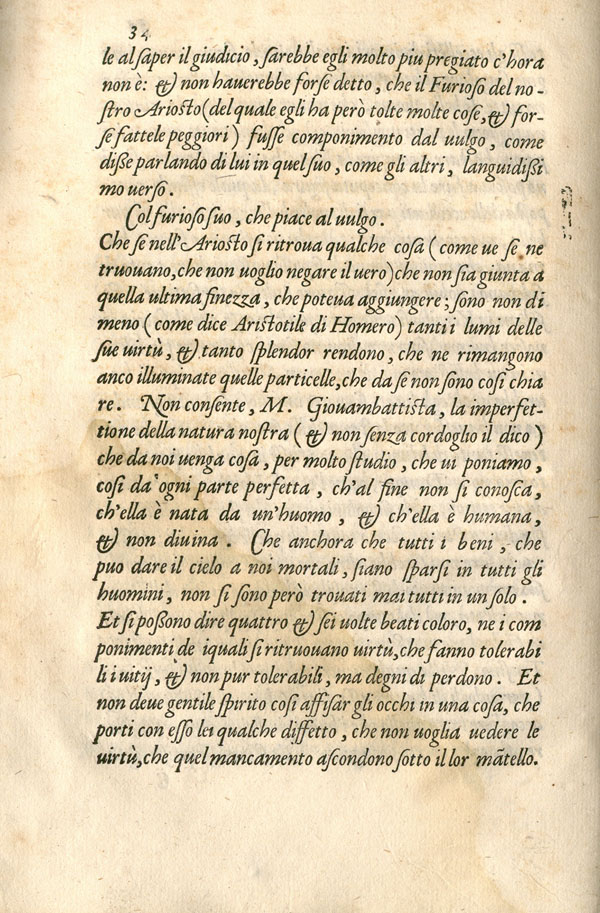 34
le al saper il giudicio, sarebbe egli molto piu pregiato c'hora
non è: & non hauerebbe forse detto, che il Furioso del no-
stro Ariosto (del quale egli ha però tolte molte cose, & for-
se fattele peggiori) fusse componimento dal uulgo, come
disse parlando di lui in quel suo, come gli altri, languidissi
mo uerso.
Col furioso suo, che piace al uulgo.
Che se nell'Ariosto si ritroua qualche cosa (come ue se ne
truouano, che non uoglio negare il uero) che non sia giunta a
quella ultima finezza, che poteua aggiungere; sono non di
meno (come dice Aristotile di Homero) tanti i lumi delle
sue uirtù, & tanto splendor rendono, che ne rimangono
anco illuminate quelle particelle, che da se non sono così chia
re. Non consente, M. Giouambattista, la imperfet-
tione della natura nostra (& non senza cordoglio il dico)
che da noi uenga cosa, per molto studio, che ui poniamo,
così da ogni parte perfetta, ch'al fine non si conosca,
ch'ella è nata da un'huomo, & ch'ella è humana,
& non diuina. Che anchora che tutti i beni, che
puo dare il cielo a noi mortali, siano sparsi in tutti gli
huomini, non si sono però trouati mai tutti in un solo.
Et si possono dire quattro & sei uolte beati coloro, ne i com
ponimenti de i quali si ritruouano uirtù, che fanno tolerabi
li i uitij, & non pur tolerabili, ma degni di perdono. Et
non deue gentile spirito così affisar gli occhi in una cosa, che
porti con esso lei qualche diffetto, che non uoglia uedere le
uirtù, che quel mancamento ascondono sotto il lor mãtello.